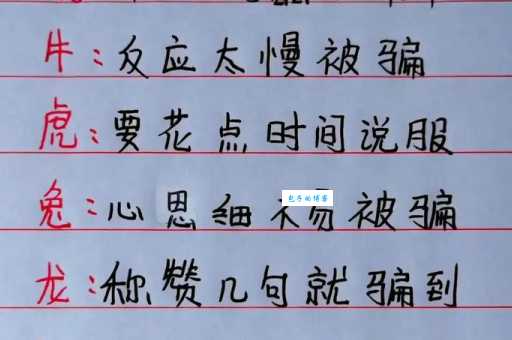 牛：反应太慢被骗
虎：要花点时间说服
兔：心思细不易被骗
包子的博客
龙：称赞几句就骗到